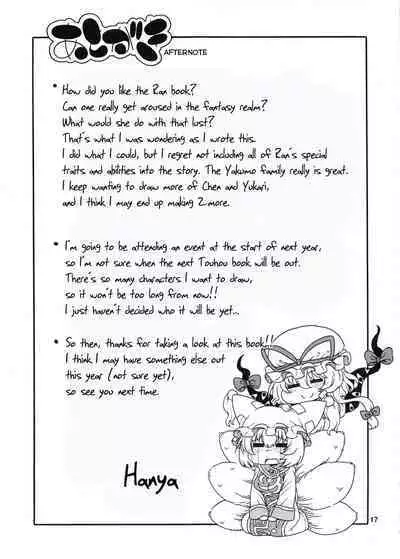 あとがき
AFTERNOTE
* How did you like the Ran book?
Can one really get aroused in the fantasy realm?
What would she do with that lust?
That's what I was wondering as I wrote this.
I did what I could, but I regret not including all of Ran's special
traits and abilities into the story. The Yakumo family really is great.
I keep wanting to draw more of Chen and Yukari,
and I think I may end up making 2 more.
* I'm going to be attending an event at the start of next year,
so I'm not sure when the next Touhou book will be out.
There's so many characters I want to draw,
so it won't be too long from now!!
I just haven't decided who it will be yet...
* So then, thanks for taking a look at this book!!
I think I may have something else out
this year (not sure yet),
so see you next time.
Hanya
17